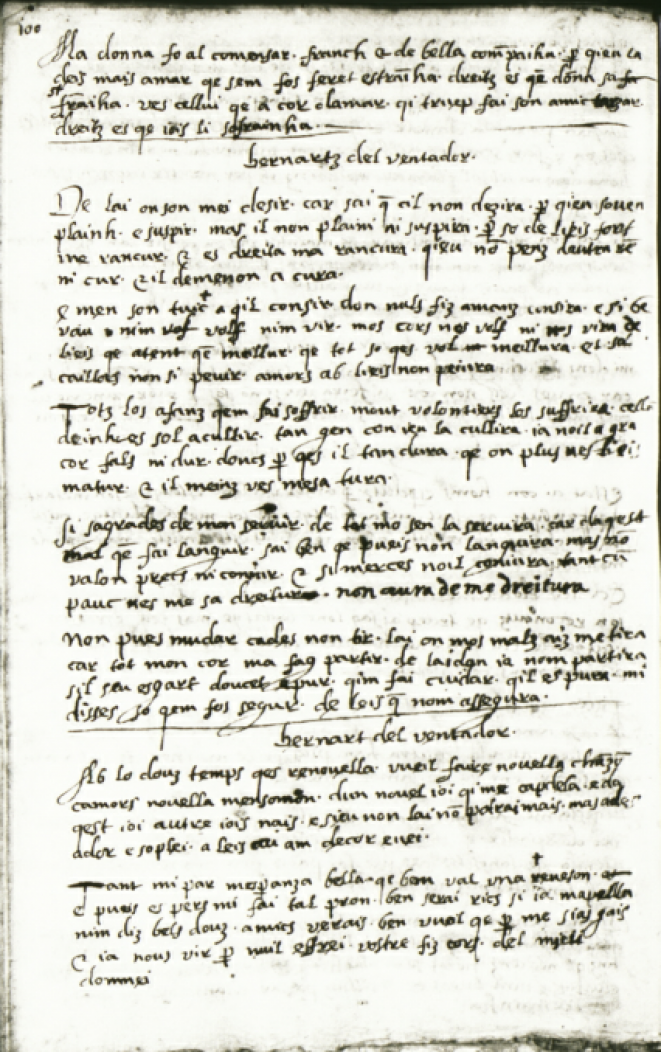 100
Ma donna fo al comensar. franch & de bella compaiha. p̄ qien la
deis mais amar qe sem fos feret estraiha. dreitz es qe dōna sa
fraiha. ves cellui qe a cor damar. qi trizep fai son amic
dreitz es qe iais li sofrainha.
bernartz del ventador.
De lai on son mei desir. car sai q̄ cil non dezira. p̄ qien soven
plainh. e suspir. mas il non plaim ni suspira. p̄ so de lieis
me rancur. & es dreita ma rancura. qieu nō penz dautra re
ni cur. & il de me non a cura.
e men son tuit a qil consir. don nuls fiz amanz consira. e si be
vau nim volf nim vir. mos cors nos volf ni nos vira de
lieis qe atent qe mellur. qe tot so qes vol meillura. et sa
caillas non si peiur. amors ab lieis non peiura
Totz los afanz qem fai soffrir. mout volontiers los suffrira. cella
de inh es sol acullir. tan gen con ien la cullira. ia noil a gra
cor fals ni dur. doncs p̄ qes il tan dura. qe on plus ves li ei
matur. & il meinz ves me sa tura.
Si sagrades de mon servir. de lot mo sen la servira. car daqest
mal qe fai languir. sai ben qe pueis non languira. mas nō
valon precs ni coniur. & si merces noil coniura. tant cū
pauc ves me sa dreitura. non aura de me dreitura
Non pues mudar cades non tir. lai on mos maltz aiz me tira
car tot mon cor ma fag partir. de lai don ia nom partira
sil seu esgart doucet e pur. qim fai cuidar. qil es pura. mi
disses so qem fos segur. de leis q̄ nom assegura.
bernart del ventador.
Ab lo douz temps qes renovella. vueil faire novella chāzō
camors novella mensomon. dun novel ioi qi me capdela. e da
qest ioi autre iois nais. e sieu non lai nō poirai mais. mas ades
ador e soplei. a leis cui am de cor e vei.
Tant mi par mespanza bella. qe bem val una reneson. &
e pueis es pers mi fai tal pron. ben serai rics si ia mapella
nim diz bels douz. amics verais. ben vuol qe p̄ me sias gais
& ia nous vir p̄ nuil esfrei. vostre fiz cors. del mieu
domnei